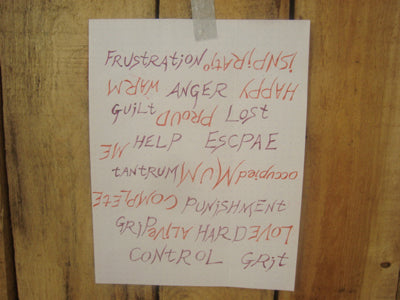 FRUStRAtiON iSNPiRAtio
WARM ANGER HAPPY
GuiLt PROUD LoSt
ME HELP ESCPAE
tANtRUM MUM occupied
COMPLETE PUNiSHMENT
GRiP ALIVE HARD LOVE
CONtROL GRit